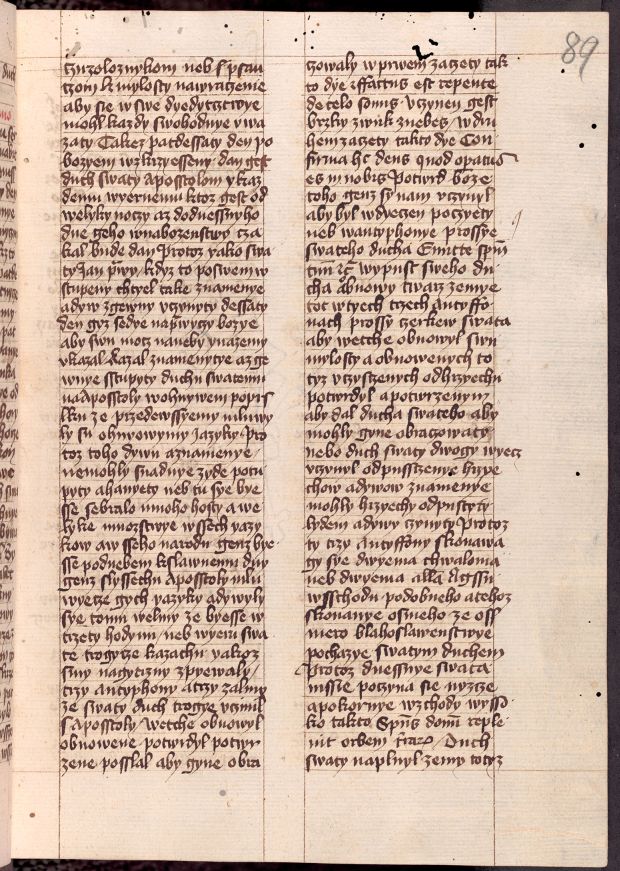 89
czizoloznykom neb s psan
czom k mylosty nawraczenie
aby sie w swe dyedyczstwye
mohl kazdy swobodnye vwa
zaty Takez patdessaty den po
bozyem wzkrzyesseny dan gest
duch swaty Aposstolom ykaz
demu wyernemu ktoz gest od
welyky noczy az do dnessnyho
dne geho w nabozenstwy cza
kal bude dan Protoz yako swa
ty Jan prwy kdyz to poswem w
stupeny chtyel take znamenye
a dyw zgewny vczynyty dessaty
den gyz sedye na prawyczy bozye
aby swu mocz na neby vnazemy
vkazal Kazal znamenytye a zge
wnye sstupyty duchu swatemu
na Aposstoly wohnywem popis
lku ze przedewssyemy mluwy
ky su ohniwowymy Jazyky Pro
toz toho dywu a znamenye
nemohly snadnye zyde potu
pyty a hanyety neb tu sye bye
sse sebralo mnoho hosty a we
lyke mnozstwye wssech yazy
kow a wsseho narodu genz bye
sse pod nebem k slawnemu dny
genz slyssechu Aposstoly mlu
wyecze gych yazyky a dywyly
sye tomu welmy ze byesse w
trzety hodynu neb wyeru swa
te trogycze kazachu yakoz
smy nagytrzny zpyewaly
trzy antyphony a trzy zalmy
ze swaty duch trogye vczinil
s Aposstoly Wetche obnowyl
obnowene potwrdyl potwr
zene posslal aby gyne obra
czowaly w prwem zaczety tak
to dye ffactus est repente
de celo sonus vczynen gest
brzky zwuk znebes W dru
hem zaczety takto dye Con
firma hoc deus quod opatus
es in nobis Potwrd boze
toho genz sy nam vczynyl
aby byl wdyeczen poczyety
neb w antyphonye prossye
swateho ducha Emitte spm
tuu etc wypust sweho du
cha abnowy twarz zemye
tot w tyech trzech Antyffo
nach prossy czerkew swata
aby wetche obnowyl swu
mylosty a obnowenych to
tyz vczyszenych od hrzechu
potwrdyl a potwrzenym
aby dal ducha swateho aby
mohly gyne obraczowaty
nebo duch swaty dwogy wyecz
vczynyl odpussczenye hrzye
chow a dywow znamenye
mohly hrzyechy odpustyty
lydem a dywy czynyty Protoz
ty trzy Antyffony skonawa
gy sye dwyema chwaloma
neb dwyema alla A gssu
wsschodu podobneho a tehoz
skonanye osmeho ze oss
mero blahoslawenstwye
pochazye swatym duchem
Protoz dnessnye swata
missie poczyna sie nyzcze
a pokornye wzchody wysso
ko takto Spus domi reple
uit orbem terrarum Duch
swaty naplnyl zemy totyz